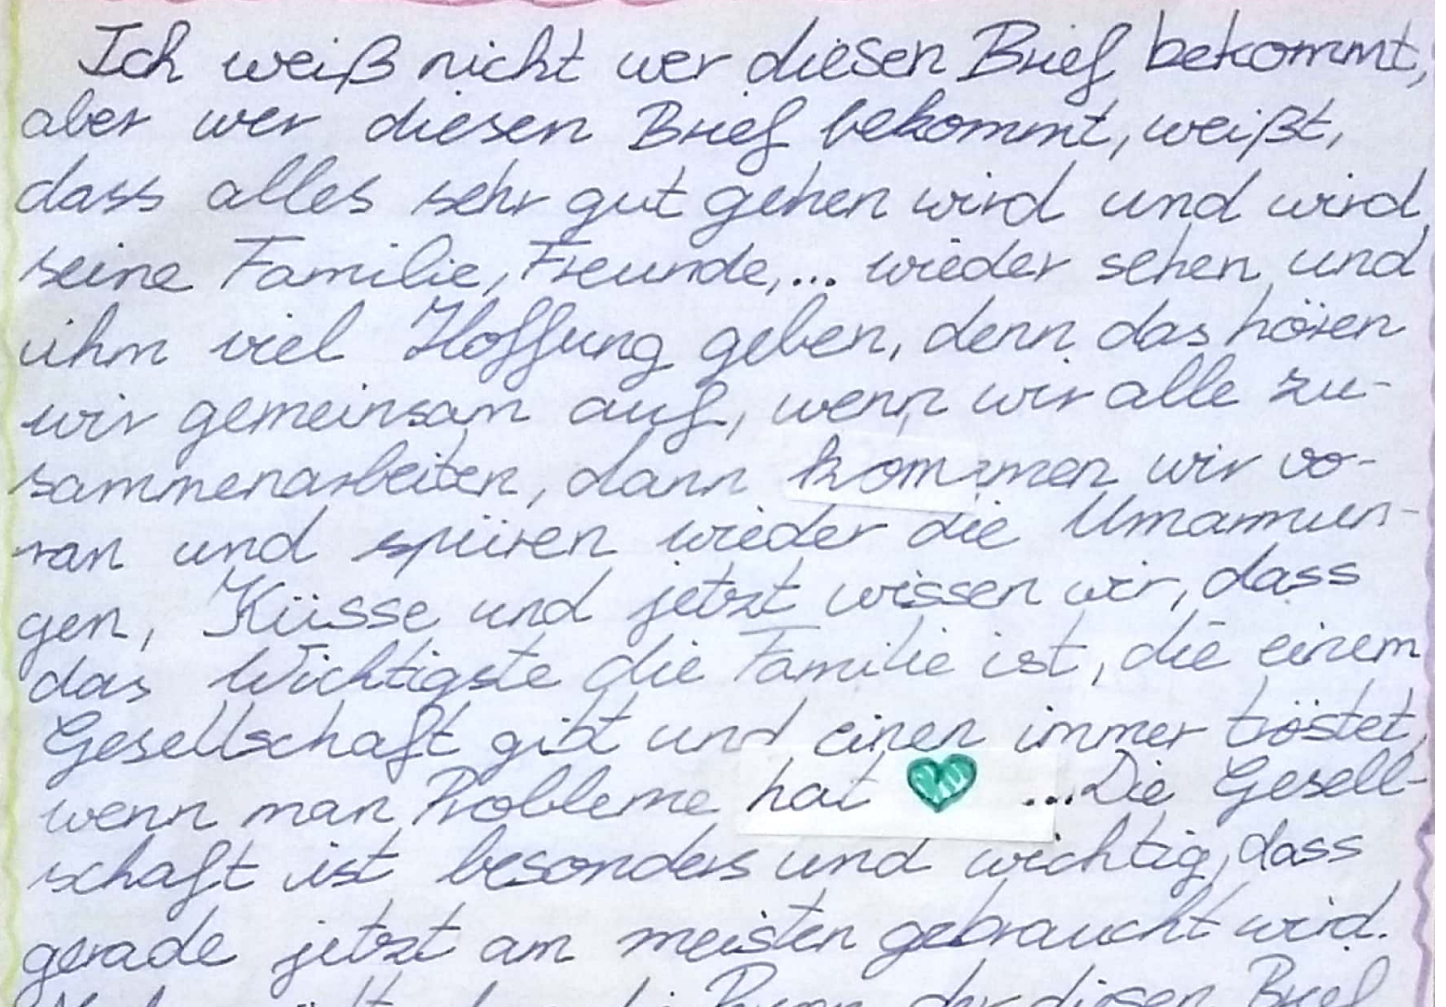 Ich weiß nicht wer diesen Brief bekommt,
aber wer diesen Brief bekommt, weißt,
dass alles sehr gut gehen wird und wird
seine Familie, Freunde,... wieder sehen und
ihm viel Hoffung geben, denn das hören
wir gemeinsam auf, wenn wir alle zu-
sammenarbeiten, dann kommen wir vo-
ran und spüren wieder die Umarmun-
gen, Küsse und jetzt wissen wir, dass
das Wichtigste die Familie ist, die einem
Gesellschaft gibt und einen immer tröstet,
wenn man Probleme hat ...Die Gesell-
schaft ist besonders und wichtig, dass
gerade jetzt am meisten gebraucht wird.
der diesen Brief